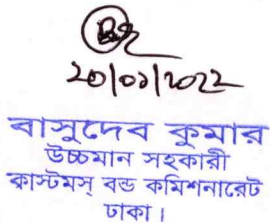 20/01/2022
বাসুদেব কুমার
উচ্চমান সহকারী
কাস্টমস্ বন্ড কমিশনারেট
ঢাকা।